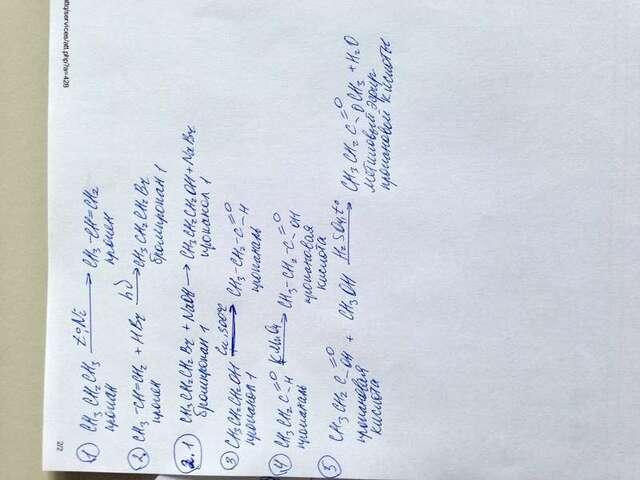 2/2
attq/services/att.php?a=428
1 CH3 CH2 CH3 t°, Ni → CH3 - CH = CH2
пропан пропен
2 CH3 - CH = CH2 + HBr hν → CH3 CH2 CH2 Br
пропен бромпропан 1
2.1 CH3 CH2 CH2 Br + NaOH → CH3 CH2 CH2 OH + NaBr
бромпропан 1 пропанол 1
3 CH3 CH2 CH2 OH Cu, 300°C → CH3 - CH2 - C =O - H
пропанол 1 пропаналь
4 CH3 CH2 C =O - H KMnO4 → CH3 - CH2 - C =O - OH
пропаналь пропановая
кислота
5 CH3 CH2 C =O - OH + CH3 OH H2SO4, t° → CH3 CH2 C =O - OCH3 + H2O
пропановая метиловый эфир
кислота пропановой кислоты